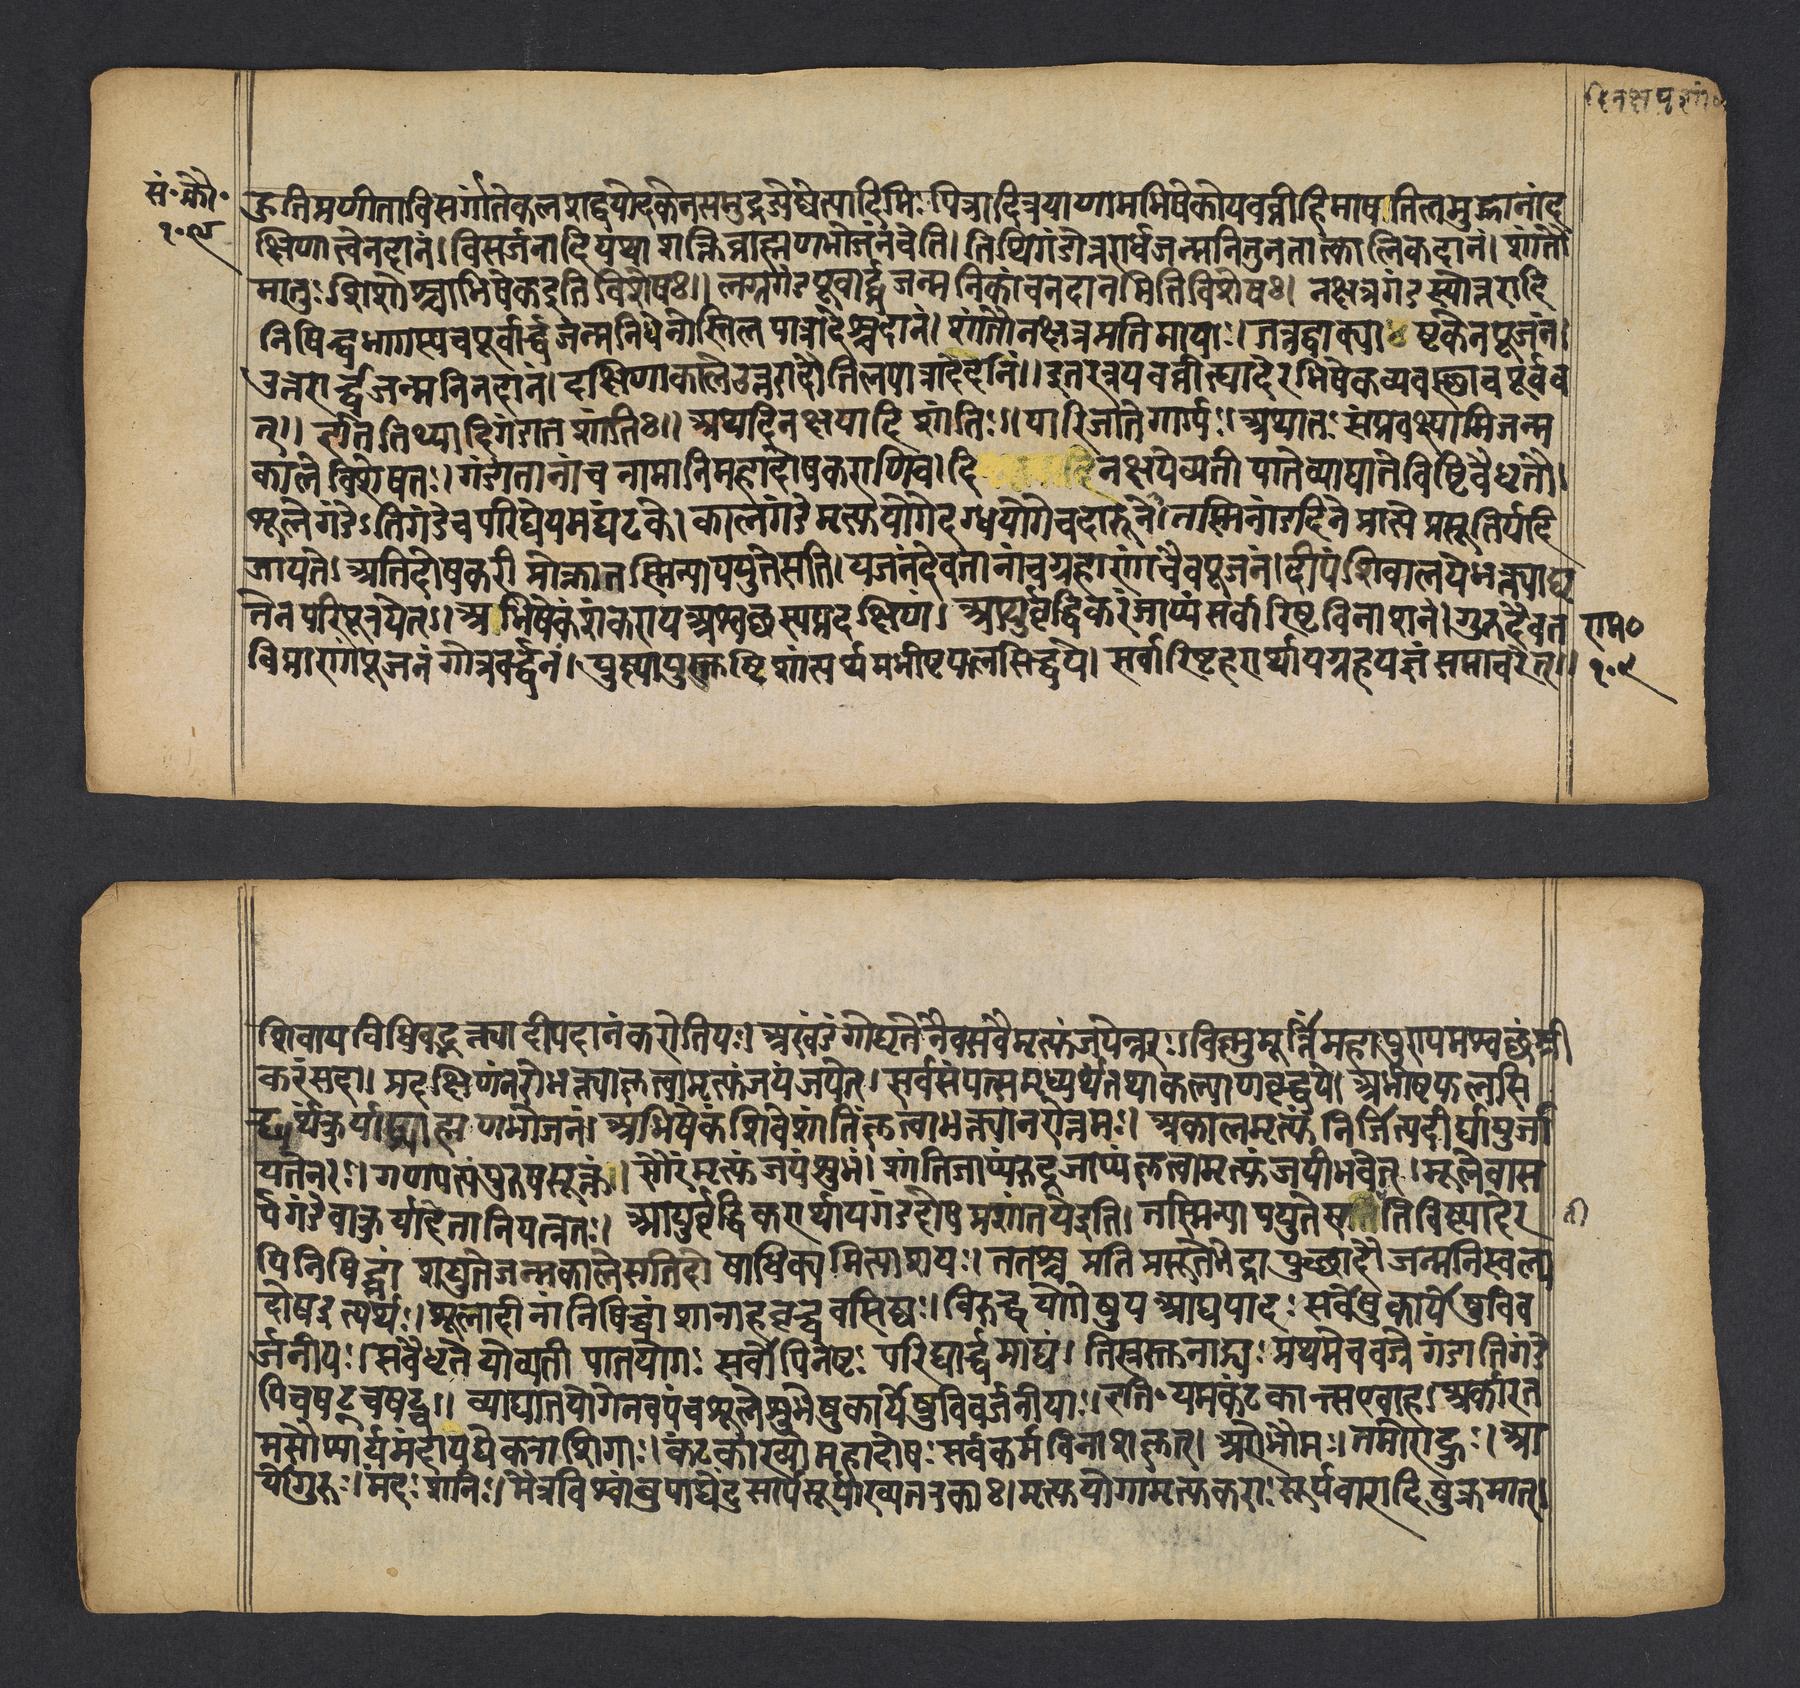 दिनक्षयशां॰
सं॰ कौ॰
१०९
हुतिप्रणीताविसर्गांतेकलशद्वयोदकेनसमुद्रज्येष्ठेत्यादिभिः पित्रादित्रयाणामभिषेकोयवव्रीहिमाषतिलमुद्गानांद
क्षिणात्वेनदानं। विसर्जनादियथाशक्तिब्राह्मणभोजनंचेति। तिथिगंडोत्तरार्धजन्मनितुनतात्कालिकेदानं। शांतौ
मातुः शिशोश्चाभिषेकइतिविशेषः॥ लग्नगंडपूर्वार्द्धजन्मनिकांचनदानमितिविशेषः। नक्षत्रगंडस्योत्तरादि
निषिद्धभागस्यचपूर्वार्द्धजन्मनिधेनोस्तिलपात्रादेश्चदानं। शांतौनक्षत्रप्रतिमायाः। तत्रद्वाक्या ष्टकेनपूजनं।
उत्तरार्द्धजन्मनिनदानं। दक्षिणाकालेउत्तरादौतिलपात्रादेर्दानं॥ इतरत्रयवव्रीत्यादेरभिषेकव्यवस्थाचपूर्वव
त्॥ इतितिथ्यादिगंडांतशांतिः॥ अथदिनक्षयादिशांतिः॥ पारिजातेगार्ग्यः। अथातः संप्रवक्ष्यामिजन्म
कालेविशेषतः। गंडांतानांचनामानिमहादोषकराणिच। दि नक्षयेव्यतीपातेव्याघातेविष्टिवैधृतौ।
शूलेगंडेऽतिगंडेचपरिघेयमघंटके। कालगंडेमृत्युयोगेदग्धयोगेचदारुणे। तस्मिन्गंडदिनेप्राप्तेप्रसूतिर्यदि
जायते। अतिदोषकरीप्रोक्तातस्मिन्पापयुतेसति। यजनंदेवतानांचग्रहाणांचैवपूजनं। दीपंशिवालयेभक्त्याघृ
तेनपरिपूरयेत्। अभिषेकंशंकरायअश्वत्थस्यप्रदक्षिणं। आयुर्वृद्धिकरंजाप्यंसर्वारिष्टविनाशनं। गुरुदैवत
विप्राणांपूजनंगोत्रवर्द्धनं। पुष्ट्यायुस्तुष्टिशांत्यर्थमभीष्टफलसिद्धये। सर्वारिष्टहरार्थायग्रहयज्ञंसमाचरेत्॥
राम०
१०९
शिवायविधिवद्भक्त्यादीपदानंकरोतियः। अखंडंगोघृतेनैवसवैमृत्युंजयेन्नरः। विष्णुमूर्तिंमहापुण्यमश्वत्थंश्री
करंसदा। प्रदक्षिणंनरोभक्त्याकृत्वामृत्युंजयंजपेत्। सर्वसंपत्समृध्यर्थंतथाकल्याणवृद्धये। अभीष्टफलसि
द्ध्यर्थंकुर्याद्ब्राह्मणभोजनं। अभिषेकंशिवेशांतिंकृत्वाभक्त्यानरोत्तमः। अकालमृत्युंनिर्जित्यदीर्घायुर्जा
यतेनरः। गाणपत्यंपुरुषसूक्तं। सौरंमृत्युंजयंशुभं। शांतिजाप्यंरुद्रजाप्यंकृत्वामृत्युंजयीभवेत्। मूलेवासा
र्पगंडेवाकुर्यादेतानियत्नतः। आयुर्वृद्धिकरार्थायगंडदोषप्रशांतयेइति। तस्मिन्पापयुतेस तिविष्ट्यादेर
ती
पिनिषिद्धांशयुतेजन्मकालेसतिदोषाधिक्यमित्याशयः। ततश्चप्रतिप्रसूतेभद्रापुच्छादौजन्मनिस्वल्प
दोषइत्यर्थः। शूलादीनांनिषिद्धांशानाहवृद्धवसिष्ठः। विरुद्धयोगेषुयआद्यपादः सर्वेषुकार्येषुविव
र्जनीयः। सवैधृतेर्योव्यतीपातयोगः सर्वोपिनेष्टः परिघार्द्धमाद्यं। तिस्रस्तुनाड्यः प्रथमेचवज्रेगंडातिगंडे
पिचषट्चषट्च॥ व्याघातयोगेनवपंचशूलेशुभेषुकार्येषुविवर्जनीयाः। इति। यमकंटकान्सएवाह। अर्कारत
मसौर्यार्यमंदायद्येकनाशिगाः। कंटकाख्योमहादोषः सर्वकर्मविनाशकृत्। आरोभौमः। तमोराहुः। आ
र्योगुरुः। मंदः शनिः। मैत्रविश्वांबुपाद्येंदुसार्पसूर्याख्यतारकाः। मृत्युयोगामृत्युकराः सूर्यवारादिषुक्रमात्।